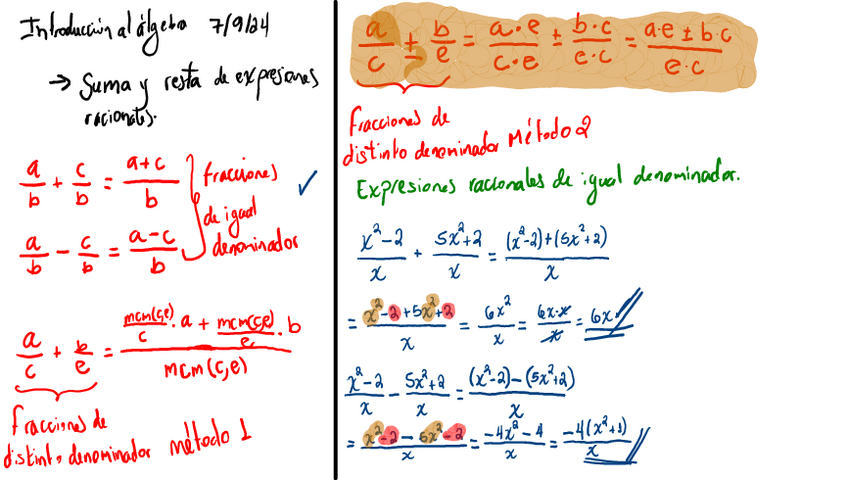 Introducción al álgebra 7/9/24
→ Suma y resta de expresiones
racionales.
a/b + c/b = (a+c)/b
fracciones
de igual
denominador
a/b - c/b = (a-c)/b
a/c + b/e = (mcm(c,e)/c · a + mcm(c,e)/e · b)/mcm(c,e)
fracciones de
distinto denominador método 1
a/c ± b/e = a·e/c·e ± b·c/e·c = (a·e ± b·c)/e·c
fracciones de
distinto denominador Método 2
Expresiones racionales de igual denominador.
(x²-2)/x + (5x²+2)/x = ((x²-2)+(5x²+2))/x
= (x²-2+5x²+2)/x = 6x²/x = 6x·x/x = 6x
(x²-2)/x - (5x²+2)/x = ((x²-2)-(5x²+2))/x
= (x²-2-5x²-2)/x = (-4x²-4)/x = -4(x²+1)/x